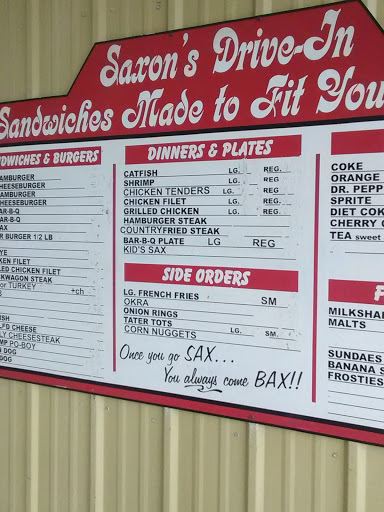 Saxon's Drive-In
Sandwiches Made to Fit You
& BURGERS
HAMBURGER
CHEESEBURGER
HAMBURGER
CHEESEBURGER
BAR-B-Q
BAR-B-Q
BURGER 1/2 LB
CHICKEN FILET
STEAK
or TURKEY +ch
CHEESE
CHEESESTEAK
PO-BOY
DOG
DOG
DINNERS & PLATES
CATFISH LG. REG.
SHRIMP LG. REG.
CHICKEN TENDERS LG. REG.
CHICKEN FILET LG. REG.
GRILLED CHICKEN LG. REG.
HAMBURGER STEAK
COUNTRYFRIED STEAK
BAR-B-Q PLATE LG REG
KID'S SAX
SIDE ORDERS
LG. FRENCH FRIES SM
OKRA
ONION RINGS
TATER TOTS
CORN NUGGETS LG. SM.
Once you go SAX...
You always come BAX!!
COKE
ORANGE
DR. PEPP
SPRITE
DIET COK
CHERRY
TEA sweet
F
MILKSHA
MALTS
SUNDAES
BANANA S
FROSTIES